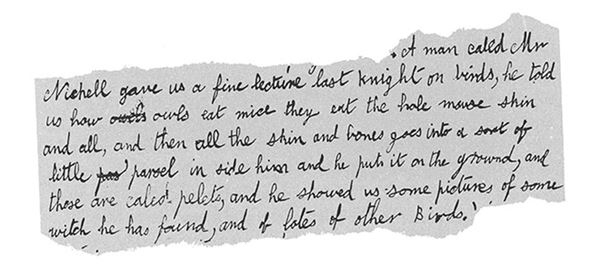 . A man caled Mr
Nichell gave us a fine lecture last knight on birds, he told
us how owels owls eat mice they eat the hole mouse skin
and all, and then all the skin and bones goes into a sort of
little pas parsel in side him and he puts it on the ground, and
those are caled pelets, and he showed us some pictures of some
witch he has found, and of lotes of other Birds.'